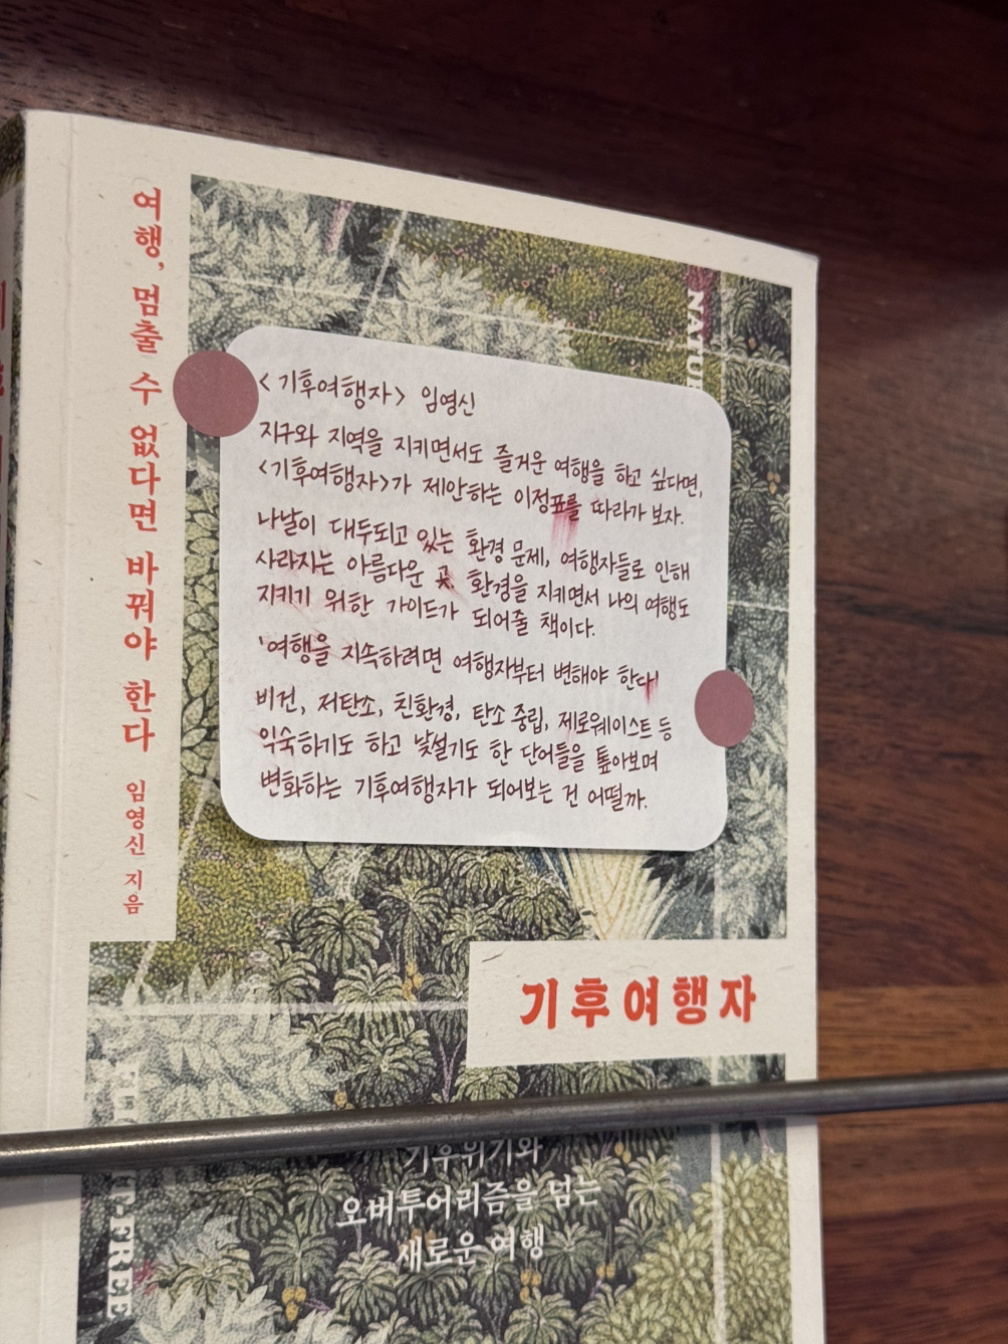 여행, 멈출 수 없다면 바꿔야 한다 임영신 지음
NATUR
<기후여행자> 임영신
지구와 지역을 지키면서도 즐거운 여행을 하고 싶다면,
<기후여행자>가 제안하는 이정표를 따라가 보자.
나날이 대두되고 있는 환경 문제, 여행자들로 인해
사라지는 아름다운 곳. 환경을 지키면서 나의 여행도
지키기 위한 가이드가 되어줄 책이다.
'여행을 지속하려면 여행자부터 변해야 한다'
비건, 저탄소, 친환경, 탄소 중립, 제로웨이스트 등
익숙하기도 하고 낯설기도 한 단어들을 톺아보며
변화하는 기후여행자가 되어보는 건 어떨까.
기후여행자
기후위기와
오버투어리즘을 넘는
새로운 여행